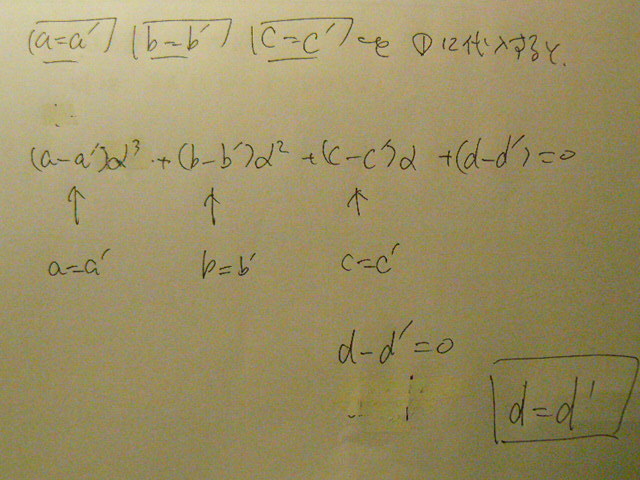 (a=a') (b=b') (c=c') を ①に代入すると、
(a-a')α³ + (b-b')α² + (c-c')α + (d-d') = 0
↑ ↑ ↑
a=a' b=b' c=c'
d-d'=0
d=d'